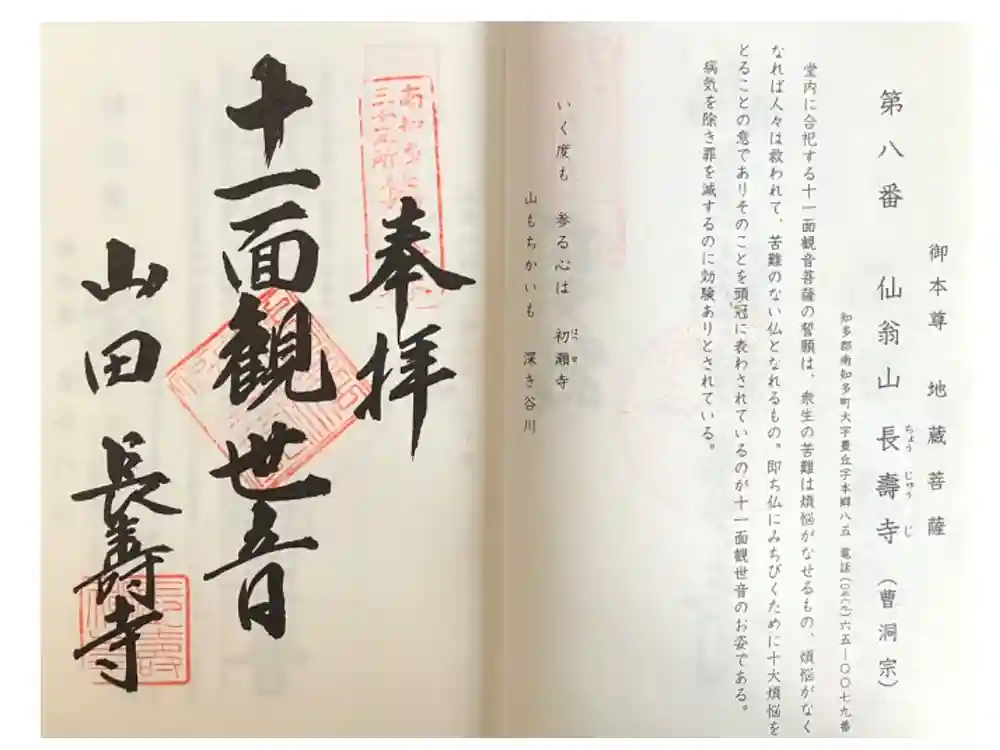 御本尊　地蔵菩薩
第八番　仙翁山　長壽寺　（曹洞宗）
ちょうじゅうじ
知多郡南知多町大字豊丘字本郷八五　電話（〇五六九）六五―〇〇七九番
堂内に合祀する十一面観音菩薩の誓願は、衆生の苦難は煩悩がなせるもの、煩悩がなく
なれば人々は救われて、苦難のない仏となれるもの。即ち仏にみちびくために十大煩悩を
とることの意でありそのことを頭冠に表わされているのが十一面観世音のお姿である。
病気を除き罪を滅するのに効験ありとされている。
いく度も　参る心は　初瀬寺
はせ
山もちかいも　深き谷川
奉拝
十一面観世音
山田　長壽寺